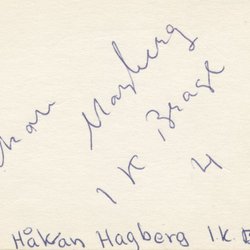 Hagberg
IK Brage
4
Håkan Hagberg IK B